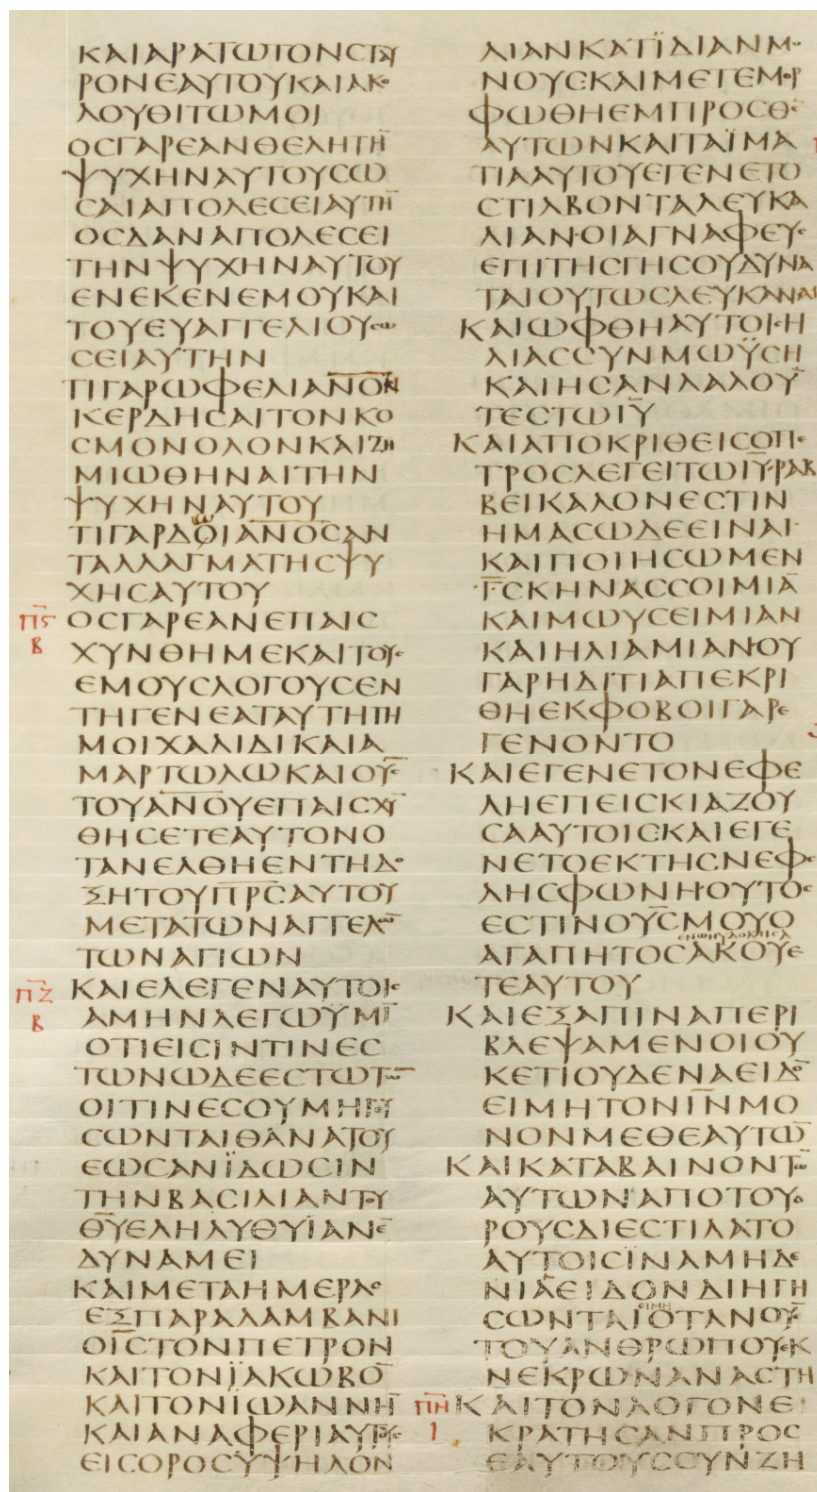 ΚΑΙΑΡΑΤΩΤΟΝϹΤΑΥ
ΡΟΝΕΑΥΤΟΥΚΑΙΑΚΟ
ΛΟΥΘΙΤΩΜΟΙ
ΟϹΓΑΡΕΑΝΘΕΛΗΤΗ̅
ΨΥΧΗΝΑΥΤΟΥϹΩ
ϹΑΙΑΠΟΛΕϹΕΙΑΥΤΗ̅
ΟϹΔΑΝΑΠΟΛΕϹΕΙ
ΤΗΝΨΥΧΗΝΑΥΤΟΥ
ΕΝΕΚΕΝΕΜΟΥΚΑΙ
ΤΟΥΕΥΑΓΓΕΛΙΟΥϹΩ
ϹΕΙΑΥΤΗΝ
ΤΙΓΑΡΩΦΕΛΙΑΝ̅Ο̅Ν̅
ΚΕΡΔΗϹΑΙΤΟΝΚΟ
ϹΜΟΝΟΛΟΝΚΑΙΖΗ
ΜΙΩΘΗΝΑΙΤΗΝ
ΨΥΧΗΝΑΥΤΟΥ
ΤΙΓΑΡΔΟΙΑ̅Ν̅Ο̅Ϲ̅ΑΝ
ΤΑΛΛΑΓΜΑΤΗϹΨΥ
ΧΗϹΑΥΤΟΥ
Π̅Ϛ̅ ΟϹΓΑΡΕΑΝΕΠΑΙϹ
Β ΧΥΝΘΗΜΕΚΑΙΤΟΥϹ
ΕΜΟΥϹΛΟΓΟΥϹΕΝ
ΤΗΓΕΝΕΑΤΑΥΤΗΤΗ
ΜΟΙΧΑΛΙΔΙΚΑΙΑ
ΜΑΡΤΩΛΩΚΑΙΟΥΪ̅Ϲ
ΤΟΥΑ̅Ν̅Ο̅Υ̅ΕΠΑΙϹΧΥ̅
ΘΗϹΕΤΕΑΥΤΟΝΟ
ΤΑΝΕΛΘΗΕΝΤΗΔΟ
ΞΗΤΟΥΠ̅Ρ̅Ϲ̅ΑΥΤΟΥ
ΜΕΤΑΤΩΝΑΓΓΕΛΩ̅
ΤΩΝΑΓΙΩΝ
Π̅Ζ̅ ΚΑΙΕΛΕΓΕΝΑΥΤΟΙϹ
Β ΑΜΗΝΛΕΓΩΥΜΙ̅
ΟΤΙΕΙϹΙΝΤΙΝΕϹ
ΤΩΝΩΔΕΕϹΤΩΤΩ̅
ΟΙΤΙΝΕϹΟΥΜΗΓΕΥ
ϹΩΝΤΑΙΘΑΝΑΤΟΥ
ΕΩϹΑΝΪΔΩϹΙΝ
ΤΗΝΒΑϹΙΛΙΑΝΤΟΥ
Θ̅Υ̅ΕΛΗΛΥΘΥΙΑΝΕ̅
ΔΥΝΑΜΕΙ
ΚΑΙΜΕΤΑΗΜΕΡΑϹ
ΕΞΠΑΡΑΛΑΜΒΑΝΙ
ΟΙ̅Ϲ̅ΤΟΝΠΕΤΡΟΝ
ΚΑΙΤΟΝΪΑΚΩΒΟ̅
ΚΑΙΤΟΝΪΩΑΝΝΗ̅
ΚΑΙΑΝΑΦΕΡΙΑΥΤΟΥϹ
ΕΙϹΟΡΟϹΥΨΗΛΟΝ
ΛΙΑΝΚΑΤΪΔΙΑΝΜΟ
ΝΟΥϹΚΑΙΜΕΤΕΜΟΡ
ΦΩΘΗΕΜΠΡΟϹΘΕ̅
ΑΥΤΩΝΚΑΙΤΑΪΜΑ
ΤΙΑΑΥΤΟΥΕΓΕΝΕΤΟ
ϹΤΙΛΒΟΝΤΑΛΕΥΚΑ
ΛΙΑΝΟΙΑΓΝΑΦΕΥϹ
ΕΠΙΤΗϹΓΗϹΟΥΔΥΝΑ
ΤΑΙΟΥΤΩϹΛΕΥΚΑΝΑΙ
ΚΑΙΩΦΘΗΑΥΤΟΙϹΗ
ΛΙΑϹϹΥΝΜΩΫϹΗ
ΚΑΙΗϹΑΝΛΑΛΟΥ̅
ΤΕϹΤΩΙ̅Υ̅
ΚΑΙΑΠΟΚΡΙΘΕΙϹΟΠΕ
ΤΡΟϹΛΕΓΕΙΤΩΙ̅Υ̅ΡΑΒ
ΒΕΙΚΑΛΟΝΕϹΤΙΝ
ΗΜΑϹΩΔΕΕΙΝΑΙ
ΚΑΙΠΟΙΗϹΩΜΕΝ
·Γ̅ϹΚΗΝΑϹϹΟΙΜΙΑ̅
ΚΑΙΜΩΥϹΕΙΜΙΑΝ
ΚΑΙΗΛΙΑΜΙΑΝΟΥ
ΓΑΡΗΔΙΤΙΑΠΕΚΡΙ
ΘΗΕΚΦΟΒΟΙΓΑΡΕ
ΓΕΝΟΝΤΟ
ΚΑΙΕΓΕΝΕΤΟΝΕΦΕ
ΛΗΕΠΕΙϹΚΙΑΖΟΥ
ϹΑΑΥΤΟΙϹΚΑΙΕΓΕ
ΝΕΤΟΕΚΤΗϹΝΕΦΕ
ΛΗϹΦΩΝΗΟΥΤΟϹ
ΕϹΤΙΝΟΥ̅Ϲ̅ΜΟΥΟ
ΕΝΩΗΥΔΟΚΗϹΑ
ΑΓΑΠΗΤΟϹΑΚΟΥΕ
ΤΕΑΥΤΟΥ
ΚΑΙΕΞΑΠΙΝΑΠΕΡΙ
ΒΛΕΨΑΜΕΝΟΙΟΥ
ΚΕΤΙΟΥΔΕΝΑΕΙΔΟ̅
ΕΙΜΗΤΟΝΙ̅Ν̅ΜΟ
ΝΟΝΜΕΘΕΑΥΤΩ̅
ΚΑΙΚΑΤΑΒΑΙΝΟΝΤΩ̅
ΑΥΤΩΝΑΠΟΤΟΥΟ
ΡΟΥϹΔΙΕϹΤΙΛΑΤΟ
ΑΥΤΟΙϹΙΝΑΜΗΔΕ
ΝΙΑΕΙΔΟΝΔΙΗΓΗ
ΕΙΜΗ
ϹΩΝΤΑΙΟΤΑΝΟΥΪ̅Ϲ
ΤΟΥΑΝΘΡΩΠΟΥΕΚ
ΝΕΚΡΩΝΑΝΑϹΤΗ
Π̅Η̅ ΚΑΙΤΟΝΛΟΓΟΝΕ
Ι ΚΡΑΤΗϹΑΝΠΡΟϹ
ΕΑΥΤΟΥϹϹΥΝΖΗ